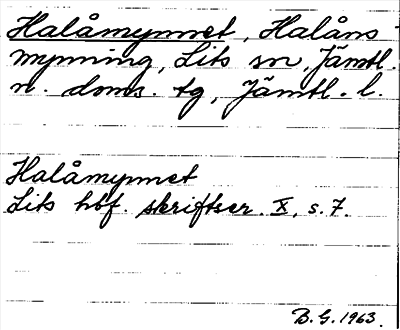 Halåmynnet, Halåns
mynning, Lits sn, Jämtl.
n. doms. tg, Jämtl. l.
Halåmynnet
Lits hbf. skriftser. X, s. 7.
B. G. 1963.